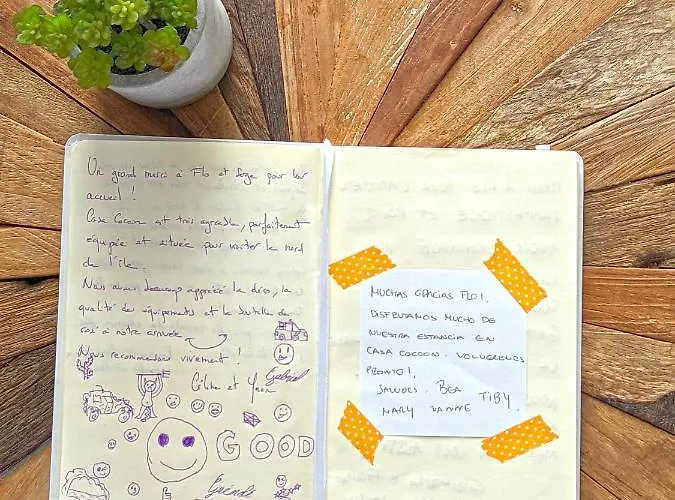 Un grand merci à Flo et Serge pour leur
accueil !
Casa Cocoon est très agréable, parfaitement
équipée et située pour visiter le nord
de l'île.
Nous avons beaucoup apprécié la déco, la
qualité des équipements et la bouteille de
à notre arrivée
Nous recommandons vivement !
Gabriel
Céline et Yann
GOOD
MUCHAS GRACIAS FLO!,
DISFRUTAMOS MUCHO DE
NUESTRA ESTANCIA EN
CASA COCOON. VOLVEREMOS
PRONTO!,
SALUDOS. BEA TIBY
MARY